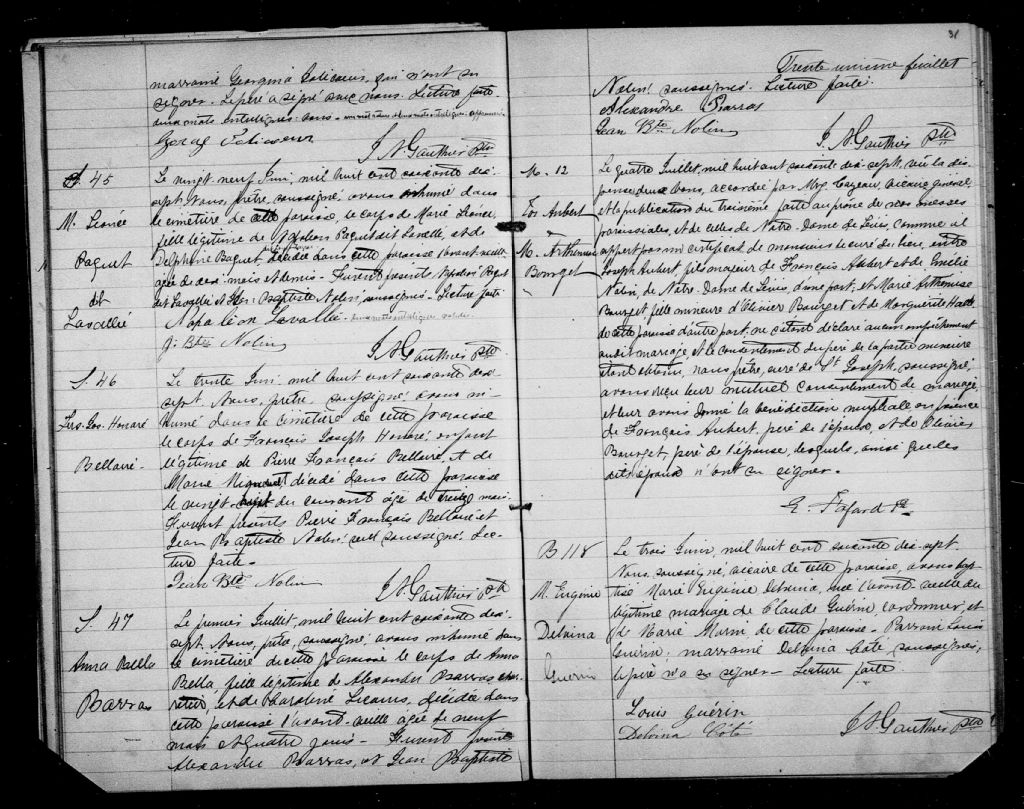 marraine Georgina
signer. Le père a signé avec nous. Lecture faite
J. N. Gauthier Ptre
S. 45
M. Léonie
Paquet
dit
Lavallée
Le vingt-neuf Juin, mil huit cent soixante dix-
sept, Nous, prêtre, soussigné, avons inhumé dans
le cimetière de cette paroisse, le corps de Marie Léonie,
fille légitime de Napoléon Paquet dit Lavallée, et de
Delphine Paquet décédée dans cette paroisse l'avant-veille
agée de deux mois et demi. Furent présents Napoléon Paquet
dit Lavallée et Jean Baptiste Nolin, soussignés. Lecture faite
Napoléon Lavallée
J. Bte Nolin
J. N. Gauthier Ptre
S. 46
Frs. Jos. Honoré
Bellaire
Le trente Juin, mil huit cent soixante dix-
sept, Nous, prêtre, soussigné, avons in-
humé dans le cimetière de cette paroisse
le corps de François Joseph Honoré, enfant
légitime de Pierre François Bellaire, et de
Marie décédé dans cette paroisse
le vingt-huit du courant agé de treize mois.
Furent présents Pierre François Bellaire et
Jean Baptiste Nolin, seul soussigné. Lec-
ture faite.
Jean Bte Nolin
J. N. Gauthier Ptre
S. 47
Anna Bella
Barras
Le premier Juillet, mil huit cent soixante dix-
sept, Nous, prêtre, soussigné, avons inhumé dans
le cimetière de cette paroisse le corps de Anna
Bella, fille légitime de Alexandre Barras char-
retier, et de Caroline décédée dans
cette paroisse l'avant-veille agée de neuf
mois et quatre jours. Furent présents
Alexandre Barras, et Jean Baptiste
31
Trente unième feuillet
Nolin soussignés. Lecture faite
Alexandre Barras
Jean Bte Nolin
J. N. Gauthier Ptre
M. 12
Jos. Aubert
&
M. Arthémise
Bourget
Le quatre Juillet, mil huit cent soixante-dix-sept, vu la dis-
pense de deux bans, accordée par Mgr Cazeau, vicaire général,
et la publication du troisième faite au prône de nos messes
paroissiales, et de celles de Notre-Dame de Lévis, comme il
appert par un certificat de monsieur le curé du lieu, entre
Joseph Aubert, fils majeur de François Aubert et de Emélie
Nolin, de Notre-Dame de Lévis, d'une part, et Marie Arthémise
Bourget, fille mineure d'Olivier Bourget et de Marguerite
de cette paroisse d'autre part; ne s'étant déclaré aucun empêchement
au dit mariage, et le consentement du père de la partie mineure
étant obtenu, nous prêtre, curé de St Joseph, soussigné,
avons reçu leur mutuel consentement de mariage
et leur avons donné la bénédiction nuptiale en présence
de François Aubert, père de l'époux, et de Olivier
Bourget, père de l'épouse, lesquels, ainsi que les
dits époux n'ont su signer.
E. Fafard Ptre
B 118
M. Eugénie
Delvina
Guérin
Le trois Juin, mil huit cent soixante dix-sept.
Nous, soussigné, vicaire de cette paroisse, avons bap-
tisé Marie Eugénie Delvina, née l'avant veille du
légitime mariage de Claude Guérin cordonnier, et
de Marie Morin, de cette paroisse. Parrain Louis
Guérin; marraine Delvina Côté soussignés;
le père n'a su signer. Lecture faite
Louis Guérin
Delvina Côté
J. N. Gauthier Ptre